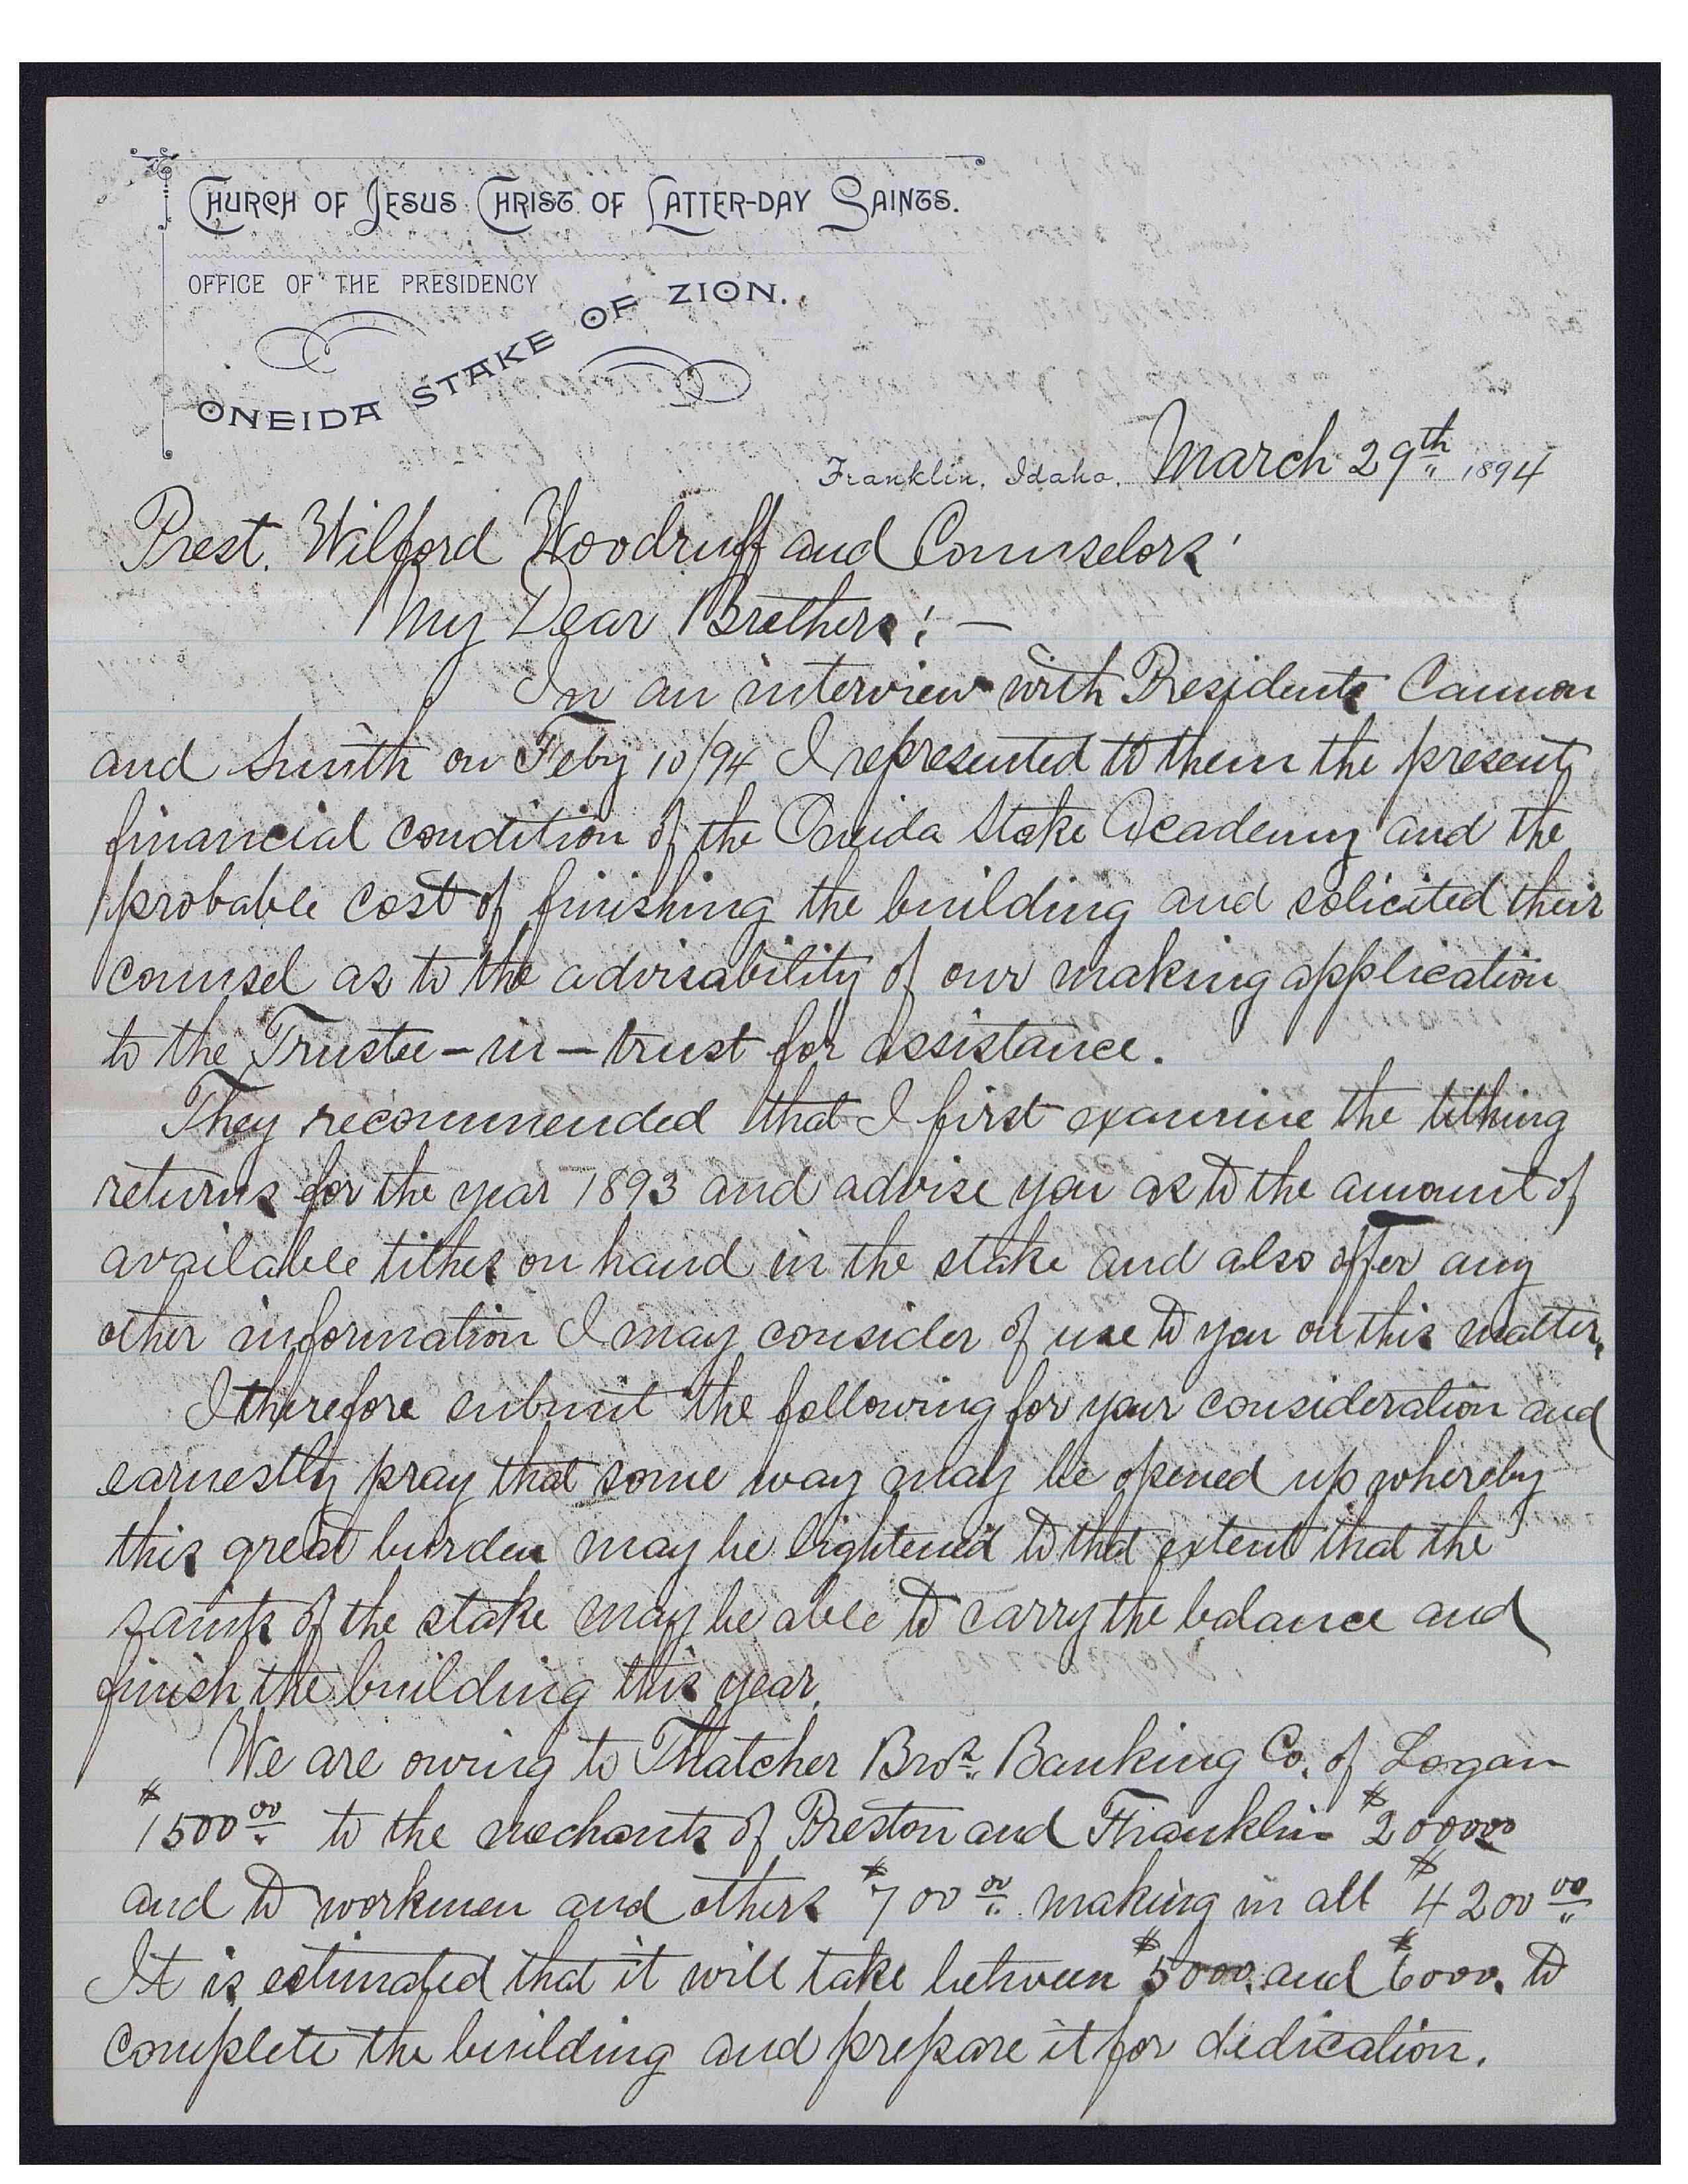 CHURCH OF JESUS CHRIST OF LATTER-DAY SAINTS.
OFFICE OF THE PRESIDENCY
ONEIDA STAKE OF ZION.
Franklin, Idaho, March 29th 1894
Prest. Wilford Woodruff and Counselors:
My Dear Brethern: —
In an interview with Presidents Cannon
and Smith on Feby 10/94 I represented to them the present
financial condition of the Oneida Stake Academy and the
probable cost of finishing the building and solicited their
counsel as to the advisability of our making application
to the Trustee-in-trust for assistance.
They recommended that I first examine the tithing
returns for the year 1893 and advise you as to the amount of
available tithes on hand in the stake and also offer any
other information I may consider of use to you on this matter.
I therefore submit the following for your consideration and
earnestly pray that some way may be opened up whereby
this great burden may be lightened to that extent that the
saints of the stake may be able to carry the balance and
finish the building this year.
We are owing to Thatcher Bros. Banking Co. of Logan
$1500.00 to the mechants of Preston and Franklin $2000.00
and to workmen and others $700.00 making in all $4200.00
It is estimated that it will take between $5000. and $6000. to
complete the building and prepare it for dedication.